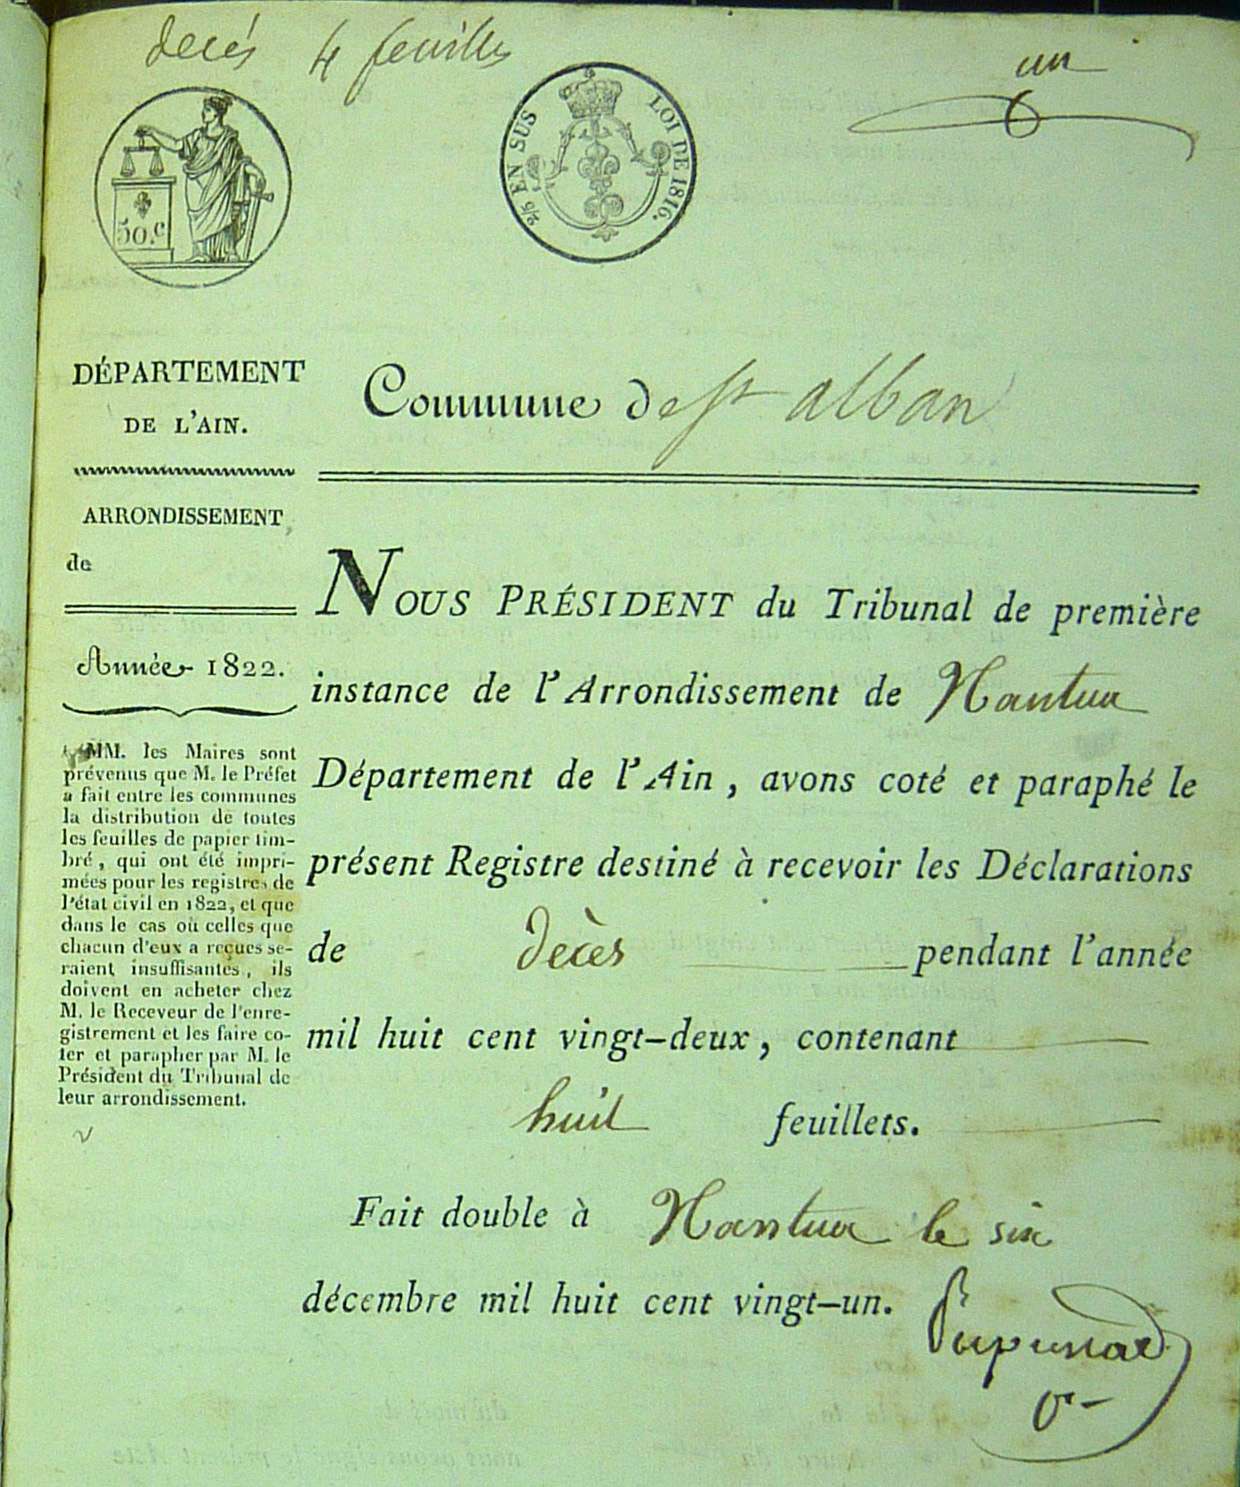 decés 4 feuilles
un
50.c
2/5 EN SUS LOI DE 1816.
DÉPARTEMENT
DE L'AIN.
Commune de st alban
ARRONDISSEMENT
de
Année 1822.
MM. les Maires sont
prévenus que M. le Préfet
a fait entre les communes
la distribution de toutes
les feuilles de papier tim-
bré, qui ont été impri-
mées pour les registres de
l'état civil en 1822, et que
dans le cas où celles que
chacun d'eux a reçues se-
raient insuffisantes, ils
doivent en acheter chez
M. le Receveur de l'enre-
gistrement et les faire co-
ter et parapher par M. le
Président du Tribunal de
leur arrondissement.
NOUS PRÉSIDENT du Tribunal de première
instance de l'Arrondissement de Nantua
Département de l'Ain, avons coté et paraphé le
présent Registre destiné à recevoir les Déclarations
de Décès pendant l'année
mil huit cent vingt-deux, contenant
huit feuillets.
Fait double à Nantua le six
décembre mil huit cent vingt-un.